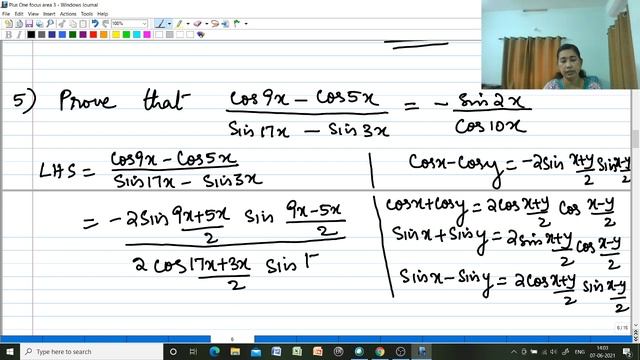 Plus One focus area 3 - Windows Journal
File Edit View Insert Actions Tools Help
100%
5) Prove that (cos9x - cos5x)/(sin17x - sin3x) = - sin2x/cos10x
LHS = (cos9x - cos5x)/(sin17x - sin3x)
= (-2sin (9x+5x)/2 sin (9x-5x)/2)/(2cos (17x+3x)/2 sin 1
cosx - cosy = -2sin (x+y)/2 sin (x-y)/2
cosx + cosy = 2cos (x+y)/2 cos (x-y)/2
sinx + siny = 2sin (x+y)/2 cos (x-y)/2
sinx - siny = 2cos (x+y)/2 sin (x-y)/2
6
Type here to search
ENG
14:03
07-06-2021